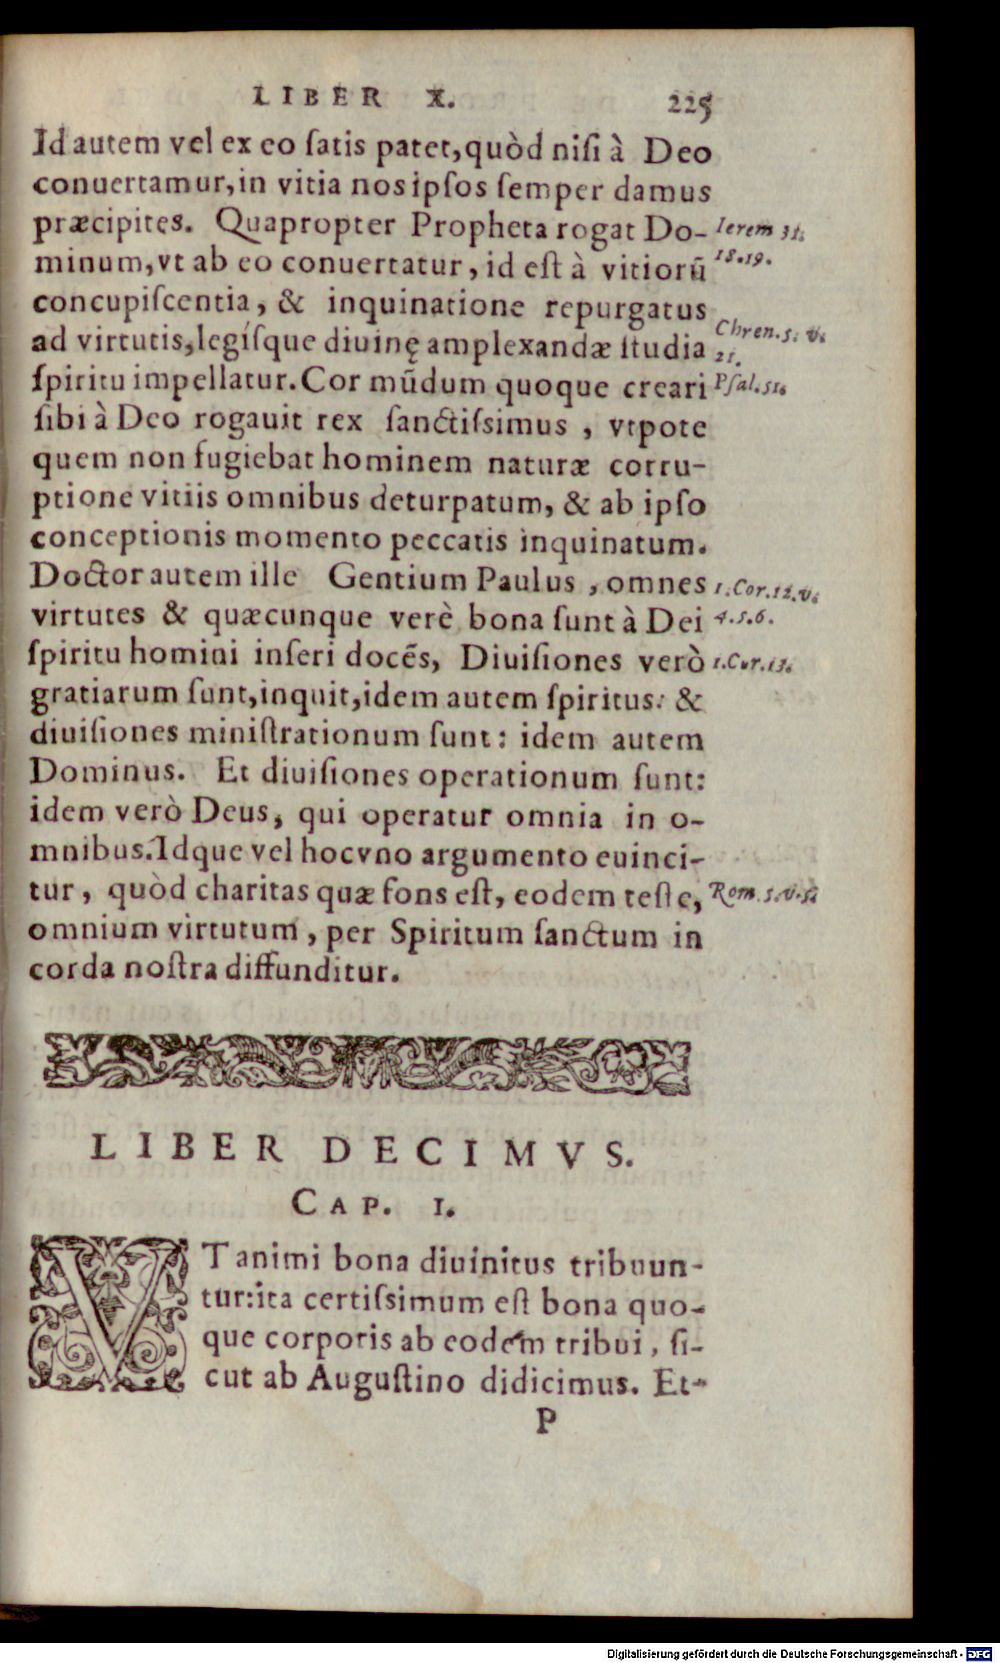 LIBER X. 225
Id autem vel ex eo ſatis patet, quòd niſi à Deo
conuertamur, in vitia nos ipſos ſemper damus
præcipites. Quapropter Propheta rogat Do-
Ierem 31.
minum, vt ab eo conuertatur, id eſt à vitiorũ
18.19.
concupiſcentia, & inquinatione repurgatus
ad virtutis, legíſque diuinę amplexandæ ſtudia
Chren. 5. v.
21.
ſpiritu impellatur. Cor mũdum quoque creari
Pſal. 51.
ſibi à Deo rogauit rex ſanctiſsimus , vtpote
quem non fugiebat hominem naturæ corru-
ptione vitiis omnibus deturpatum, & ab ipſo
conceptionis momento peccatis inquinatum.
Doctor autem ille Gentium Paulus , omnes
1. Cor. 12. v.
virtutes & quæcunque verè bona ſunt à Dei
4.5.6.
ſpiritu homini inſeri docẽs, Diuiſiones verò
1. Cor. 13.
gratiarum ſunt, inquit, idem autem ſpiritus: &
diuiſiones miniſtrationum ſunt: idem autem
Dominus. Et diuiſiones operationum ſunt:
idem verò Deus, qui operatur omnia in o-
mnibus. Idque vel hoc vno argumento euinci-
tur, quòd charitas quæ fons eſt, eodem teſte,
Rom. 5. v. 5.
omnium virtutum , per Spiritum ſanctum in
corda noſtra diffunditur.
LIBER DECIMVS.
CAP. I.
VT animi bona diuinitus tribuun-
tur: ita certiſsimum eſt bona quo-
que corporis ab eodem tribui, ſi-
cut ab Auguſtino didicimus. Et-
P
Digitalisierung gefördert durch die Deutsche Forschungsgemeinschaft - DFG